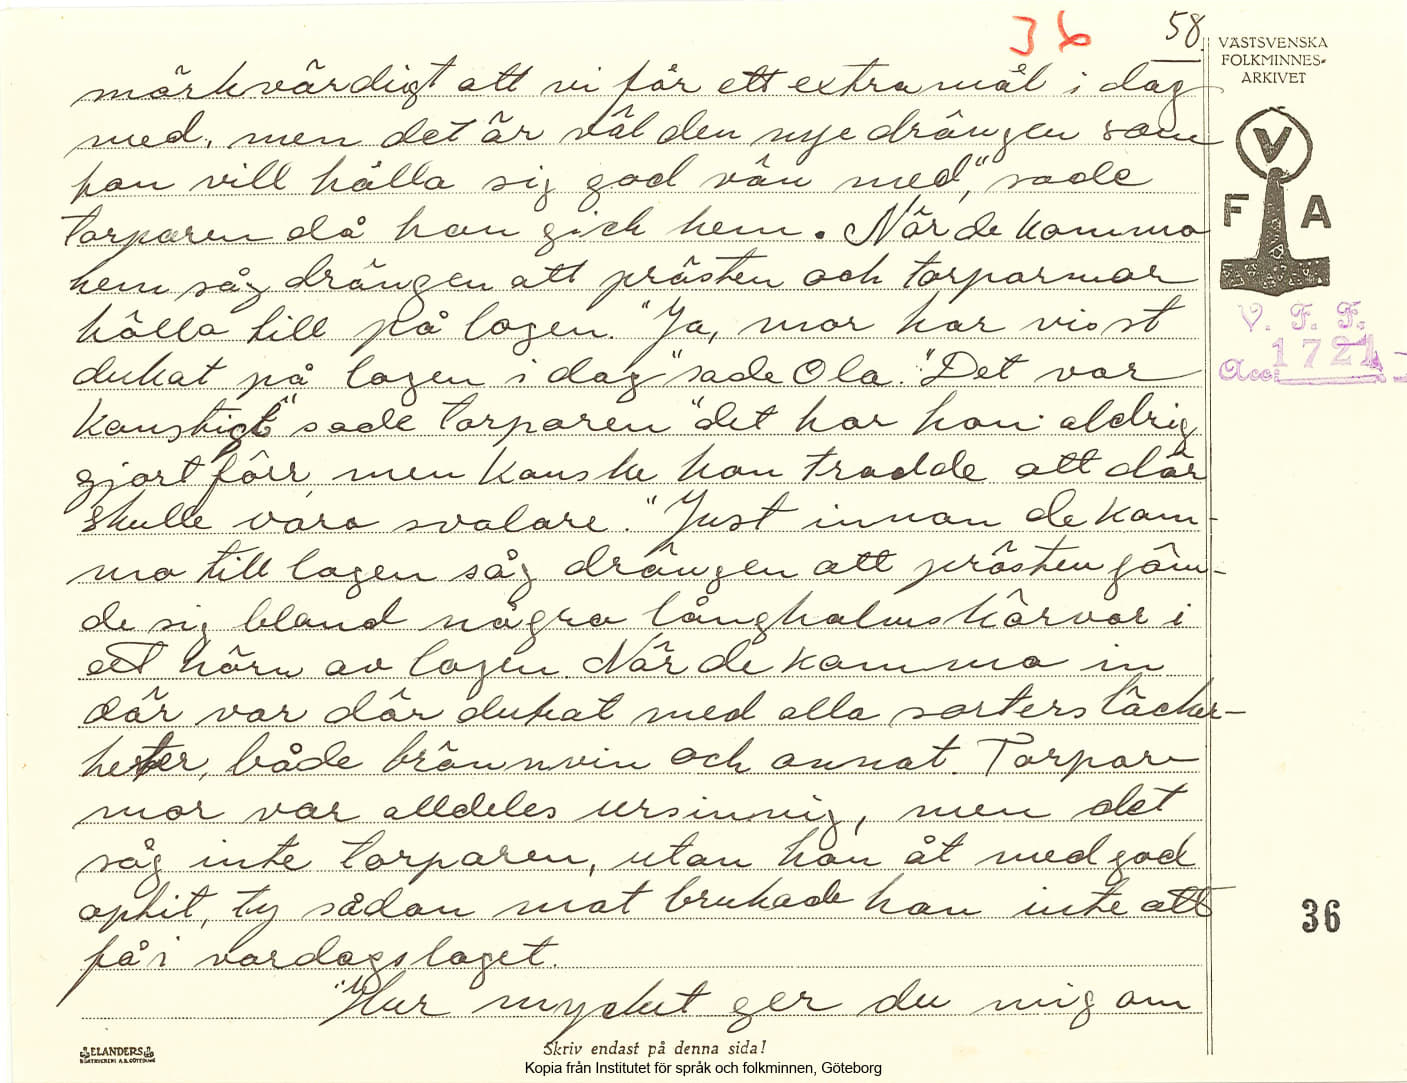 36
58
VÄSTSVENSKA
FOLKMINNES-
ARKIVET
V
F A
V. F. F.
Acc. 1721
märkvärdigt att vi får ett extra mål i dag
med, men det är väl den nye drängen som
hon vill hålla sig god vän med", sade
torparen då han gick hem. När de kommo
hem såg drängen att prästen och torparmor
hölla till på logen. "Ja, mor har visst
dukat på logen i dag" sade Ola. "Det var
konstigt" sade torparen "det har hon aldrig
gjort förr, men kanske hon trodde att där
skulle vara svalare." Just innan de kom-
mo till logen såg drängen att prästen göm-
de sig bland några långhalmskärvar i
ett hörn av logen. När de kommo in
där var där dukat med alla sorters läcker-
heter, både brännvin och annat. Torpar-
mor var alldeles ursinnig, men det
såg inte torparen, utan han åt med god
aptit, ty sådan mat brukade han inte att
få i vardagslaget.
"Hur mycket ger du mig om
36
ELANDERS
Skriv endast på denna sida!
Kopia från Institutet för språk och folkminnen, Göteborg